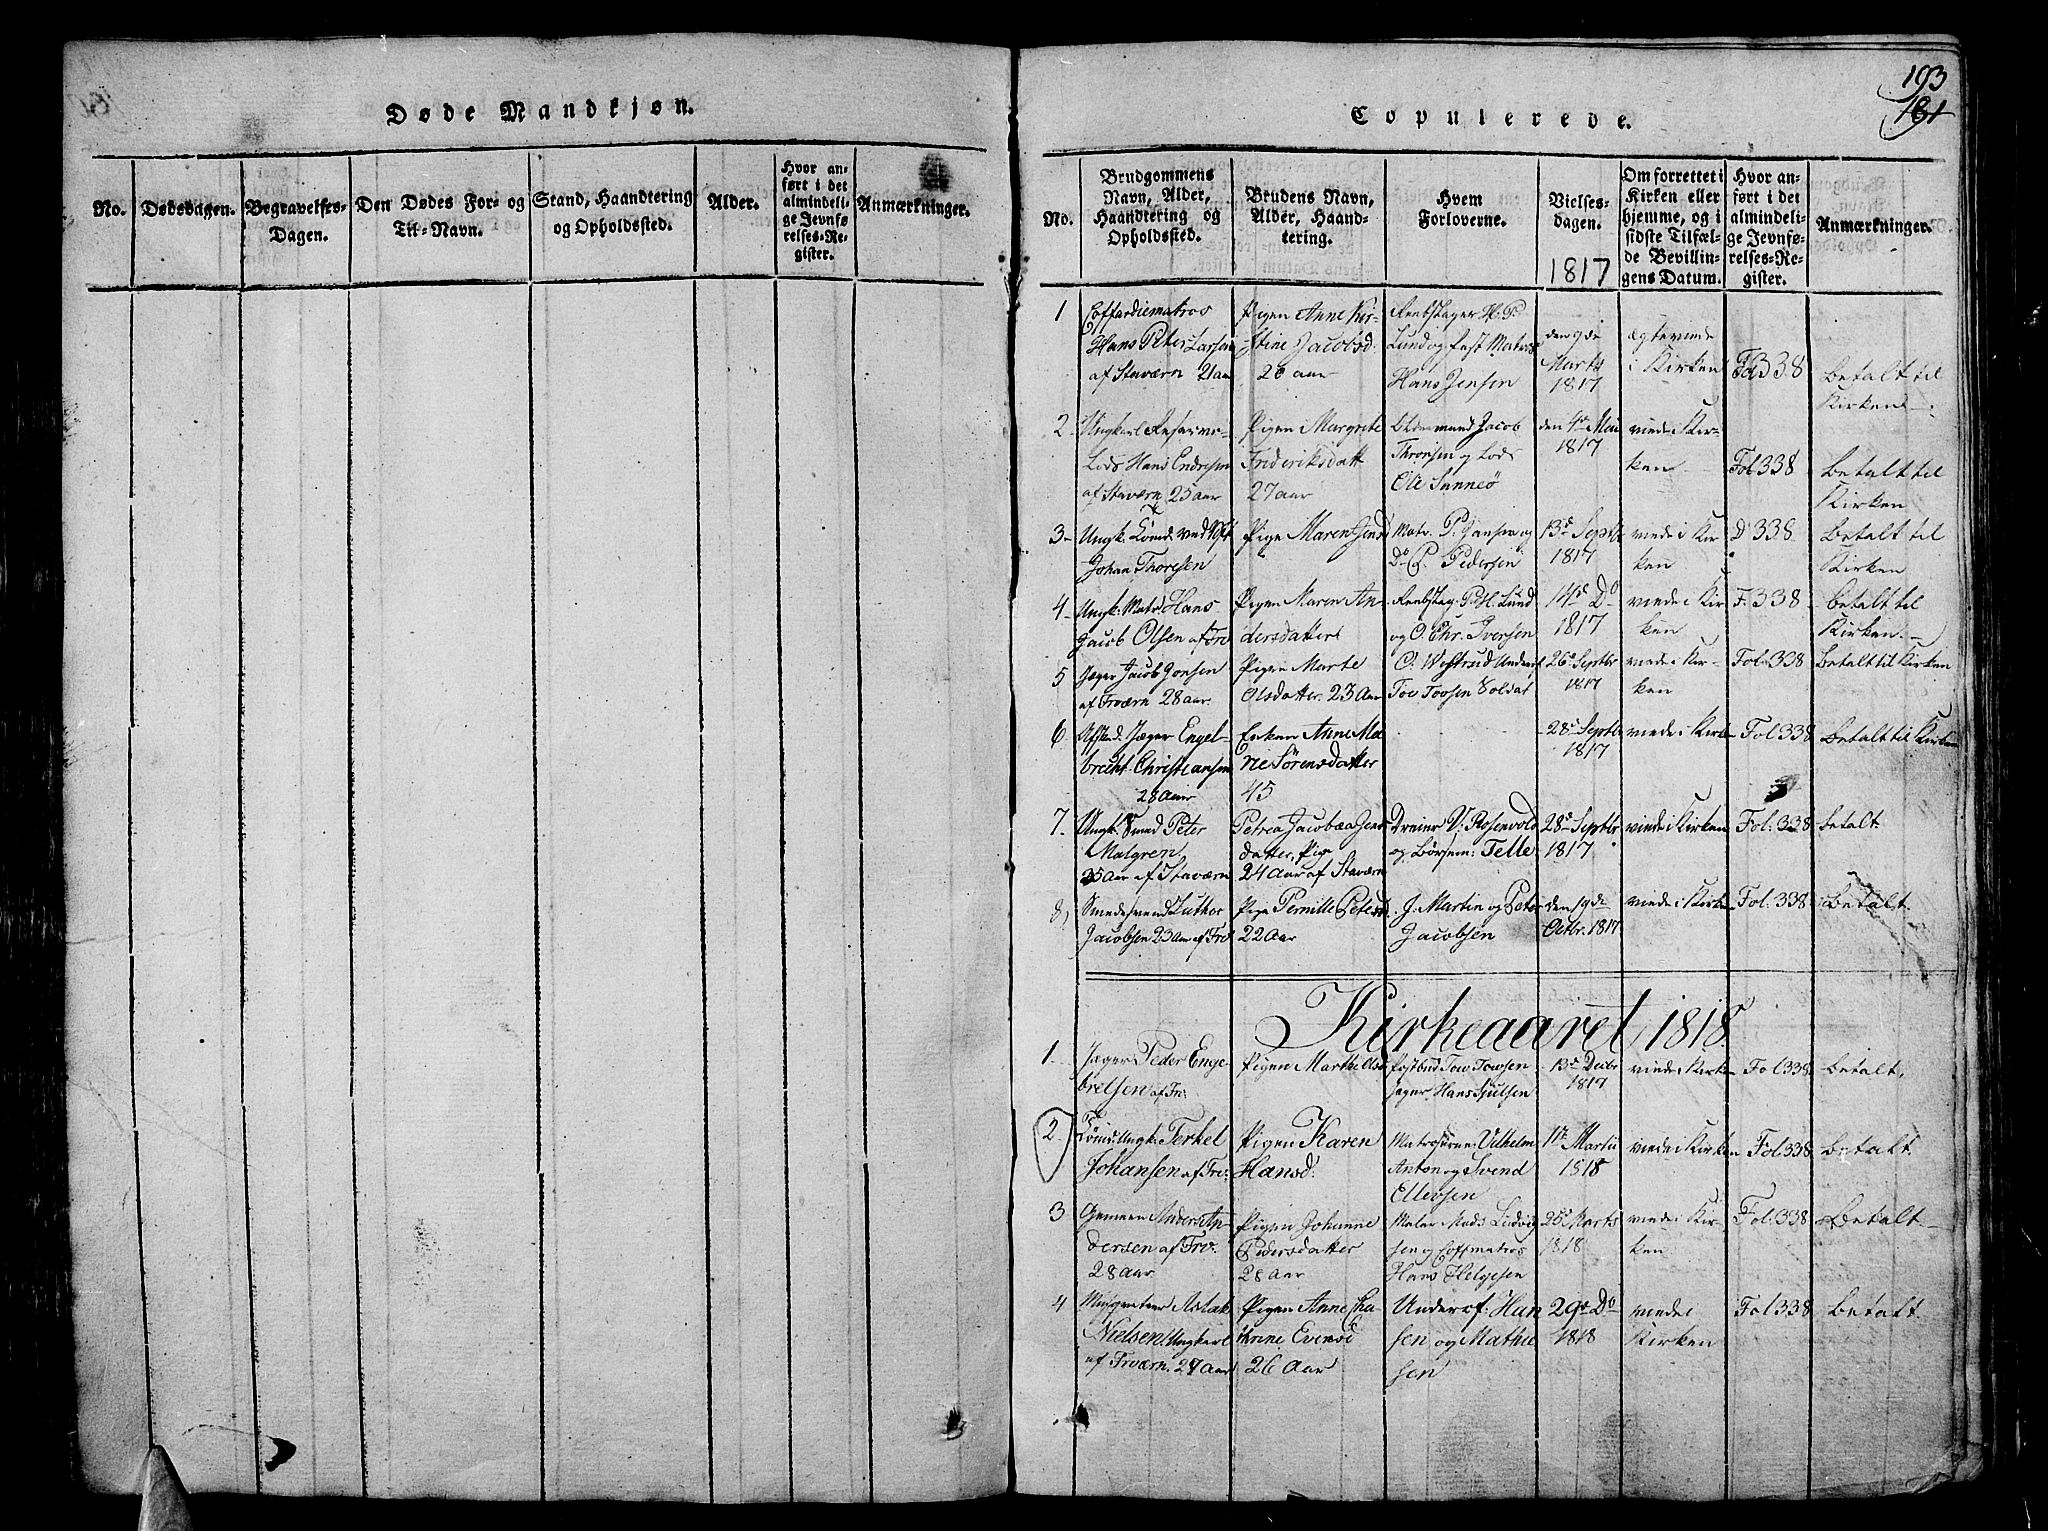 Døde Mandkjøn.
No.
Dødsdagen.
Begravelses-
Dagen.
Den Dødes For- og
Til-Navn.
Stand, Haandtering
og Opholdssted.
Alder.
Hvor an-
ført i det
almindeli-
ge Jevnfø
relses-Re-
gister.
Anmærkninger.
193
181
Copulerede.
No.
Brudgommens
Navn, Alder,
Haandtering og
Opholdssted.
Brudens Navn,
Alder, Haand-
tering.
Hvem
Forloverne.
Vielses-
dagen.
1817
Om forrettet i
Kirken eller
hjemme, og i
sidste Tilfæl-
de Bevillin-
gens Datum.
Hvor an-
ført i det
almindeli-
ge Jevnfø-
relses-Re-
gister.
Anmærkninger.
1
Coffardiematros
Hans Peter Larsen
af Staværn 21 aar
Pigen Anne Kir-
stine Jacobsd.
20 aar
Reebslager H. P.
Lund og fest Matros
Hans Jensen
den 9de
Marts
1817
ægteviede
i Kirken
Fol 338
Betalt til
Kirken
2
Ungkarl Reserve-
Lods Hans Endresen
af Staværn 25 aar
Pigen Margrete
Frideriksdatt
27 aar
Oldermand Jacob
Thronsen og Lods
Ole Sunneö
den 4de Mai
1817
viede i Kir-
ken
Fol 338
Betalt til
Kirken
3
Ungk. Tömd. ved
Johan Thoresen
Pige Maren Jensd
Matr. P. Jansen og
Do C. Pedersen
13de Septbr
1817
viede i Kir-
ken
D 338
Betalt til
Kirken
4
Ungk. Matr. Hans
Jacob Olsen af Frv
Pigen Maren An-
dersdatter
Reebslag. P. H. Lund
og O. Chr. Iversen
14de Do
1817
viede i Kir-
ken
F. 338
Betalt til
Kirken.
5
Jæger Jacob Jonsen
af Frværn 28 aar.
Pigen Marte
Olsdatter. 23 Aar
O. Westrud Underof
Tov Tovsen Soldat
26de Septbr
1817
viede i Kir-
ken
Fol. 338
Betalt til Kirken
6
Afsked. Jæger Engel-
brecht Christiansen
28 Aar
Enken Anne Ma-
rie Sörensdatter
45
28de Septb
1817
viede i Kirken
Fol 338
Betalt til Kirken
7
Ungk. Smed Peter
Malgren
25 Aar af Staværn
Petrea Jacobæa Jens
datter, Pige
24 Aar af Staværn
Dreier V. Rosenvold
og Börsem: Telle
28de Septbr
1817
viede i Kirken
Fol: 338
Betalt
8
Smedesvend Luthor
Jacobsen 23 Aar af Frv
Pige Pernille Petersd
22 Aar
J. Martin og Peter
Jacobsen
den 19de
Octbr. 1817
viede i Kirken
Fol: 338
Betalt
Kirkeaaret 1818.
1.
Jæger Peder Enge-
bretsen af Fr:
Pigen Marthe Olsd
Postbud Tov Tovsen
Jæger Hans Juelsen
13de Decbr
1817
viede i Kirken
Fol 338
Betalt.
2.
Tömd: Ungk: Terkel
Johansen af Frv:
Pigen Karen
Hansd.
Matroserne Vilhelm
Anton og Svend
Ellevsen
11te Martii
1818
viede i Kirken
Fol 338
Betalt
3
Gemeen Anders An-
dersen af Frv.
28 aar
Pigen Johanne
Pedersdatter
28 aar
Maler Mads Ludvig
sen og Coffmatros
Hans Helgesen
20de Marts
1818
viede i Kir-
ken
Fol: 338
Betalt
4
Musqueteer Aslak
Nielsen Ungkarl
af Frværn. 27 Aar
Pigen Anne Cha-
trine Evensd
26 Aar
Underof: Han
sen og Mathie
sen
29de Do
1818
viede i
Kirken
Fol 338
Betalt